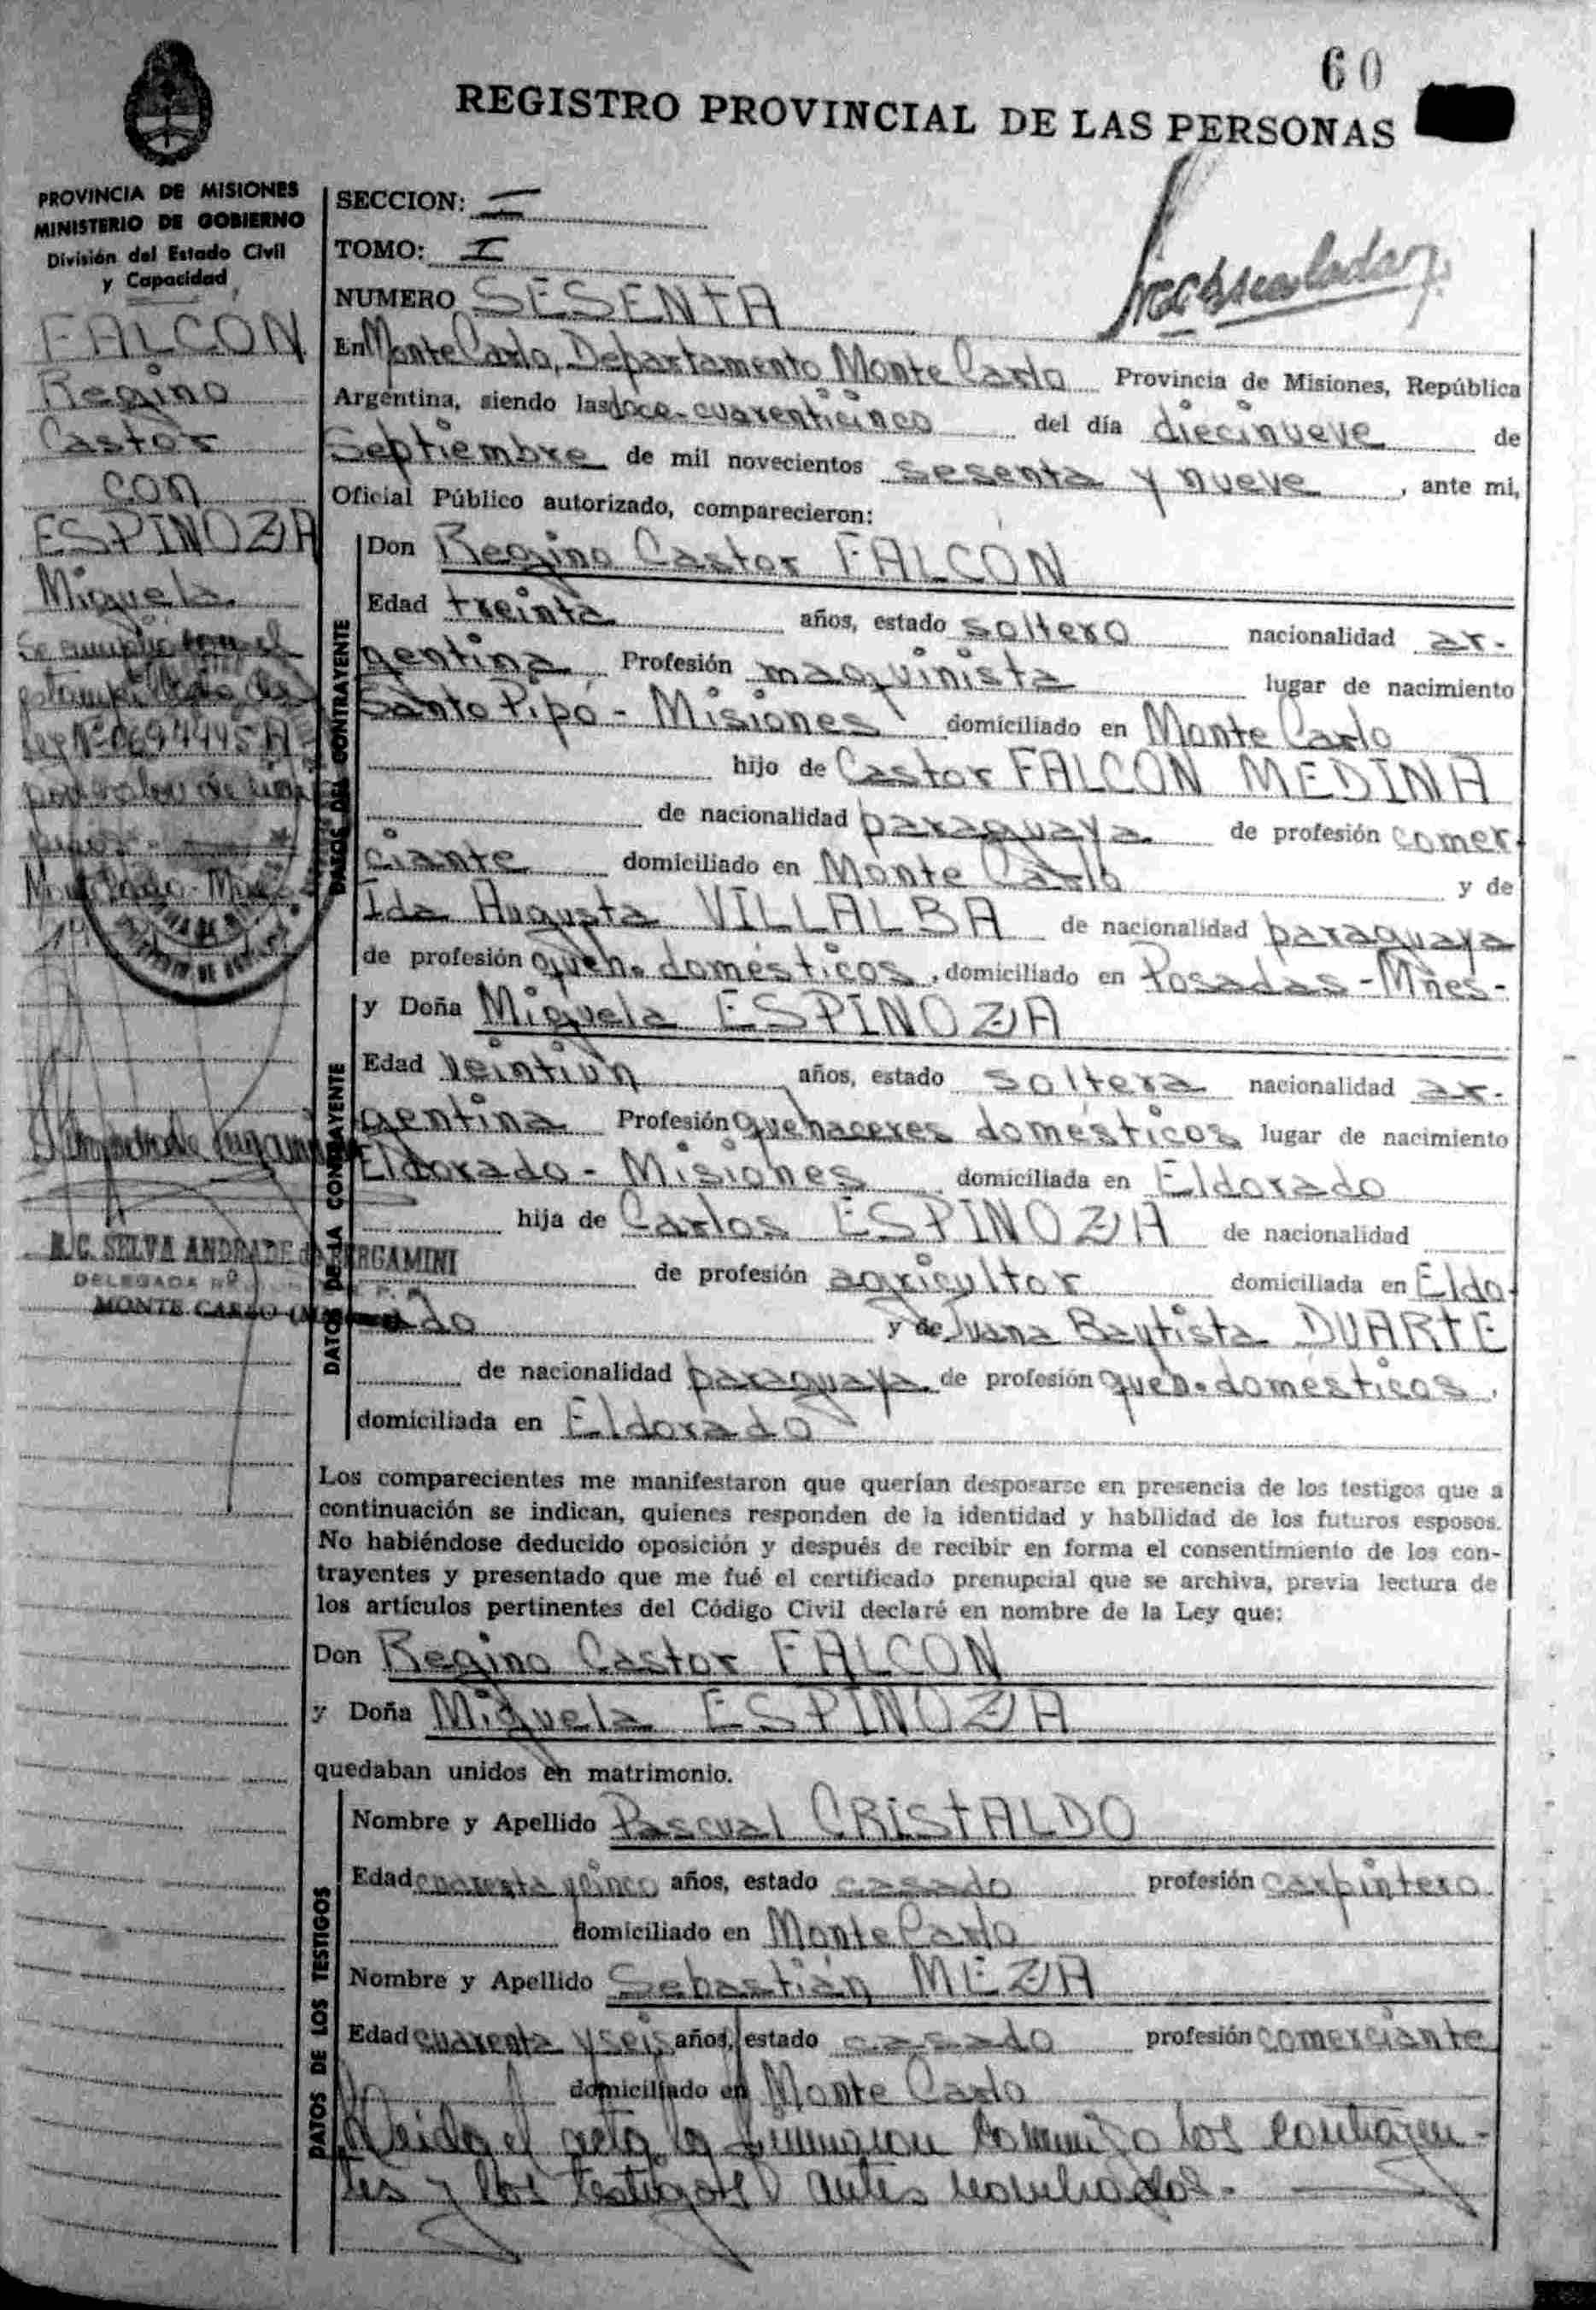 60
REGISTRO PROVINCIAL DE LAS PERSONAS
PROVINCIA DE MISIONES
MINISTERIO DE GOBIERNO
División del Estado Civil
y Capacidad
FALCON
Regino
Castor
con
ESPINOZA
Miguela
Se cumplió con el
Ley Nº 0694445 A
por valor de
pesos
R.C. SELVA ANDRADE de BERGAMINI
DELEGADA Nº
MONTE CARLO
SECCION: I
TOMO: I
NUMERO SESENTA
En Monte Carlo, Departamento Monte Carlo Provincia de Misiones, República
Argentina, siendo las doce-cuarenticinco del día diecinueve de
Septiembre de mil novecientos sesenta y nueve, ante mi,
Oficial Público autorizado, comparecieron:
DATOS DEL CONTRAYENTE
Don Regino Castor FALCON
Edad treinta años, estado soltero nacionalidad ar-
gentina Profesión maquinista lugar de nacimiento
Santo Pipó - Misiones domiciliado en Monte Carlo
hijo de Castor FALCON MEDINA
de nacionalidad paraguaya de profesión comer-
ciante domiciliado en Monte Carlo y de
Ida Augusta VILLALBA de nacionalidad paraguaya
de profesión queh. domésticos, domiciliado en Posadas - Mnes-
DATOS DE LA CONTRAYENTE
y Doña Miguela ESPINOZA
Edad veintiun años, estado soltera nacionalidad ar-
gentina Profesión quehaceres domésticos lugar de nacimiento
Eldorado - Misiones domiciliada en Eldorado
hija de Carlos ESPINOZA de nacionalidad
de profesión agricultor domiciliada en Eldo-
rado y de Juana Bautista DUARTE
de nacionalidad paraguaya de profesión queh. domésticos,
domiciliada en Eldorado
Los comparecientes me manifestaron que querían desposarse en presencia de los testigos que a
continuación se indican, quienes responden de la identidad y habilidad de los futuros esposos.
No habiéndose deducido oposición y después de recibir en forma el consentimiento de los con-
trayentes y presentado que me fué el certificado prenupcial que se archiva, previa lectura de
los artículos pertinentes del Código Civil declaré en nombre de la Ley que:
Don Regino Castor FALCON
y Doña Miguela ESPINOZA
quedaban unidos en matrimonio.
DATOS DE LOS TESTIGOS
Nombre y Apellido Pascual CRISTALDO
Edad cuarenta y cinco años, estado casado profesión carpintero
domiciliado en Monte Carlo
Nombre y Apellido Sebastián MEZA
Edad cuarenta y seis años, estado casado profesión comerciante
domiciliado en Monte Carlo
Leida el acta la firmaron conmigo los contrayen-
tes y los testigos antes nombrados.-